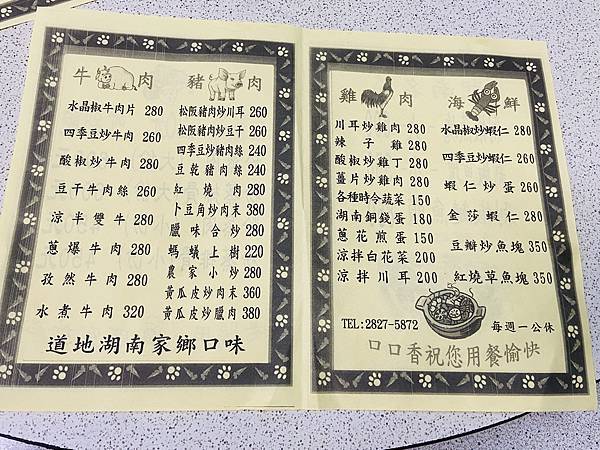 牛肉
水晶椒牛肉片 280
四季豆炒牛肉 260
酸椒炒牛肉 280
豆干牛肉絲 260
涼半雙牛 280
蔥爆牛肉 280
孜然牛肉 280
水煮牛肉 320
豬肉
松阪豬肉炒川耳 260
松阪豬肉炒豆干 260
四季豆炒豬肉絲 240
豆乾豬肉絲 240
紅燒肉 280
卜豆角炒肉末 380
臘味合炒 280
螞蟻上樹 220
農家小炒 280
黃瓜皮炒肉末 360
黃瓜皮炒臘肉 380
道地湖南家鄉口味
雞肉
川耳炒雞肉 280
辣子雞 280
酸椒炒雞丁 280
薑片炒雞肉 280
各種時令蔬菜 150
湖南銅錢蛋 180
蔥花煎蛋 150
涼拌白花菜 200
涼拌川耳 200
海鮮
水晶椒炒蝦仁 280
四季豆炒蝦仁 260
蝦仁炒蛋 260
金莎蝦仁 280
豆瓣炒魚塊 350
紅燒草魚塊 350
TEL:2827-5872
每週一公休
口口香祝您用餐愉快